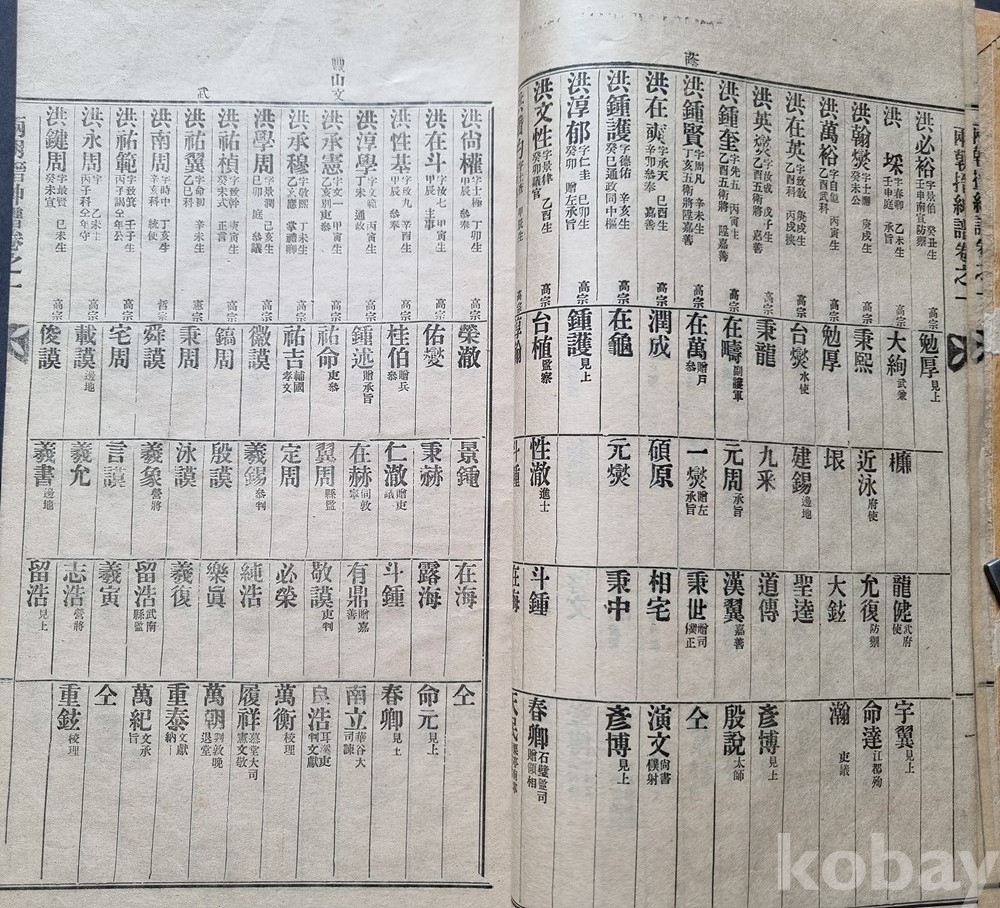 蔭
洪必裕 字景伯 癸丑生 壬申南宣防禦 高宗 勉厚 見上
洪埰 字春卿 乙未生 壬申庭 承旨 高宗 大絢 武兼 櫶 龍健 武府使 宇翼 見上
洪翰燮 字士 庚戌生 癸未公 高宗 秉熙 近泳 府使 允復 防禦 命達 江都殉
洪萬裕 字自 丙寅生 乙酉武科 高宗 勉厚 垠 大鉉 瀚 吏議
洪在英 字致敎 庚戌生 乙酉科 丙戌 高宗 台燮 水使 建錫 邊地 聖逵
洪英燮 字汝 戊子生 乙酉五衛將 嘉善 高宗 秉龍 九采 道傳 彥博 見上
洪鍾奎 字先五 丙寅生 乙酉五衛將陞嘉善 高宗 在疇 副護軍 元周 承旨 漢翼 嘉善 殷說 太師
洪鍾賢 字周凡 辛未生 丁亥五衛將陞嘉善 高宗 在萬 贈戶參 一燮 贈左承旨 秉世 贈司僕正 仝
洪在奭 字承天 乙巳生 辛卯參奉 嘉善 高宗 潤成 碩原 相宅 演文 尙書僕射
洪鍾護 字德佑 辛亥生 癸巳通政同中樞 高宗 在龜 元燮 秉中 彥博 見上
洪淳郁 字仁圭 己卯生 癸卯 贈左承旨 高宗 鍾護 見上
洪文性 字景律 乙酉生 癸卯議官 高宗 台植 監察 性澈 進士 斗鍾 春卿 石壁監司贈領相
豐山 文
洪尙權 字士極 丁卯生 甲辰參奉 高宗 榮澈 景鍾 在海 仝
洪在斗 字汝七 甲寅生 甲辰 主事 高宗 佑燮 秉赫 露海 命元 見上
洪性基 字政九 辛酉生 甲辰參奉 高宗 桂伯 贈兵參 仁澈 贈吏議 斗鍾 春卿 見上
洪淳學 字文範 丙戌生 丁未 通政 高宗 鍾述 贈承旨 在赫 同敦寧 有鼎 贈嘉善 南立 華谷大司諫
洪承憲 字文一 甲寅生 乙亥別東 高宗 祐命 吏參 翼周 縣監 敬謨 吏判 良浩 耳溪吏判文獻
洪承穆 字敬熙 丁未生 乙亥應 掌禮卿 高宗 祐吉 輔國孝文 定周 必榮 萬衡 校理
洪學周 字景顯 己亥生 己卯 庭 參議 高宗 徽謨 義錫 參判 純浩 履祥 慕堂大司憲文敬
洪祐楨 字致幹 庚寅生 癸未式 正言 高宗 鎬周 殷謨 樂眞 萬朝 判敦晩退堂
洪祐翼 字命初 辛未生 乙巳科 憲宗 秉周 泳謨 義復 重泰 文獻納
武
洪南周 字時中 丁亥生 辛亥科 統使 哲宗 舜謨 義象 營將 留浩 武南縣監 萬紀 文承旨
洪祐範 字致箕 壬子生 丙子謁 仝年公 高宗 宅周 言謨 義寅 仝
洪永周 字 乙未生 丙子科仝年守 高宗 載謨 邊地 義允 志浩 營將 重鉉 校理
洪鍵周 字最賢 己未生 癸未宣 高宗 俊謨 義書 邊地 留浩 見上
kobay